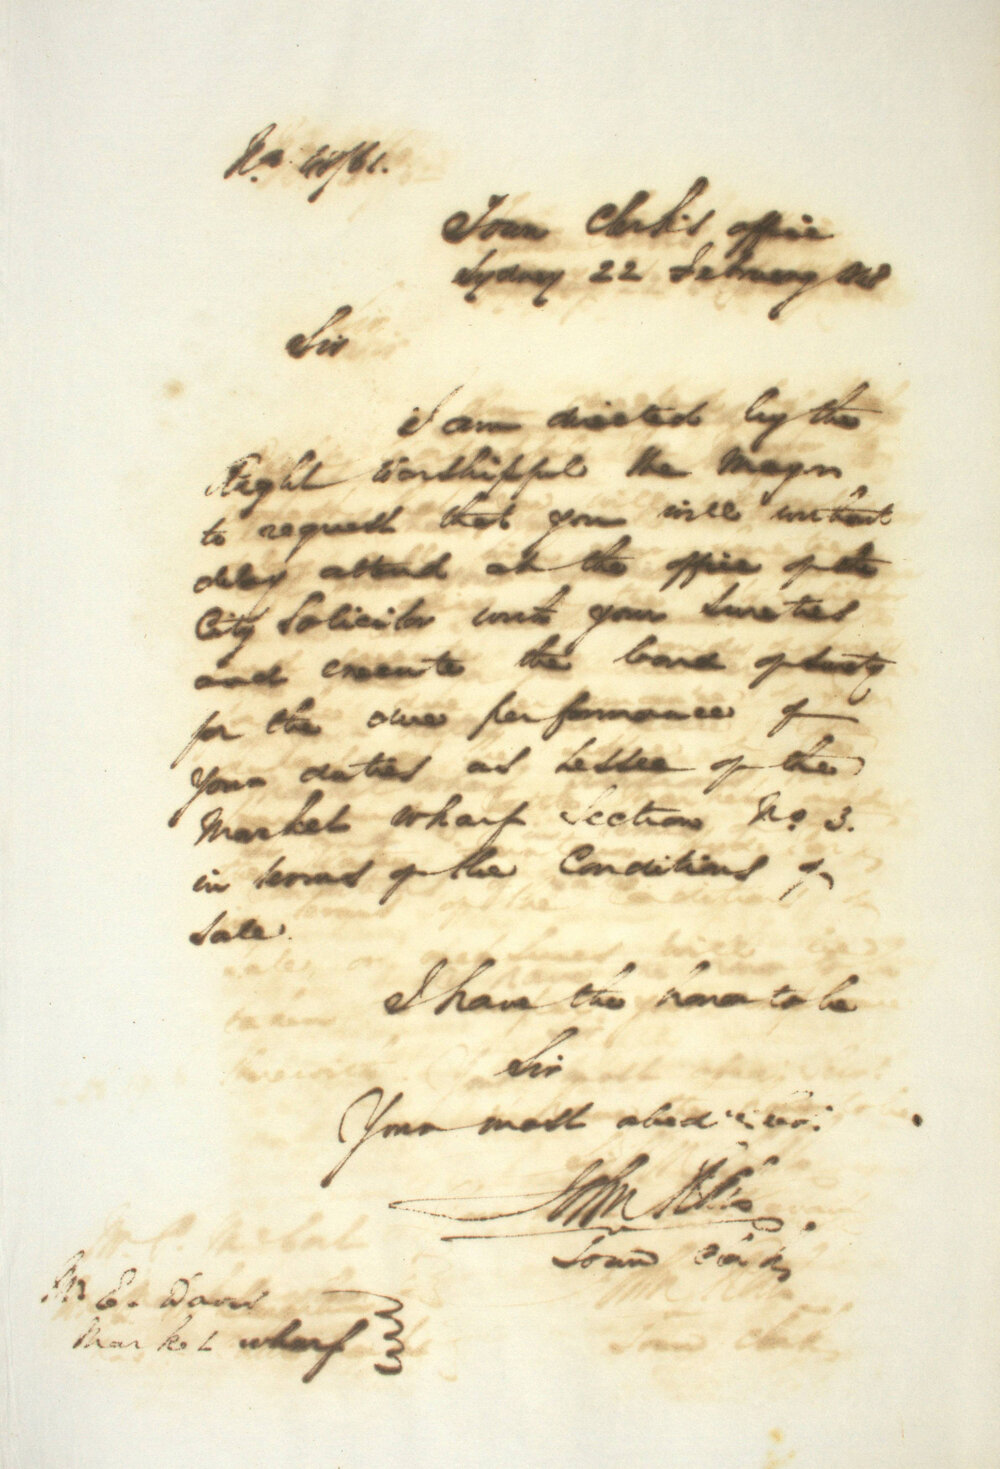 Town Clerk's office
Sydney 22 February
Sir
I am directed by the
Right Worshipful the Mayor
to request that you will without
delay attend at the office of the
City Solicitor with your Sureties
and execute the bond of
for the due performance of
Your duties as Lessee of the
Market Wharf Section No 3.
in terms of the Conditions of
Sale.
I have the honor to be
Sir
Your most
John
Town Clerk
Mr E. Davis
Market wharf